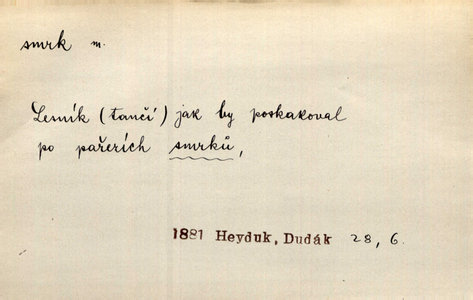 smrk m.
Lesník (tančí) jak by poskakoval
po pařezích smrků,
1881 Heyduk, Dudák 28, 6.